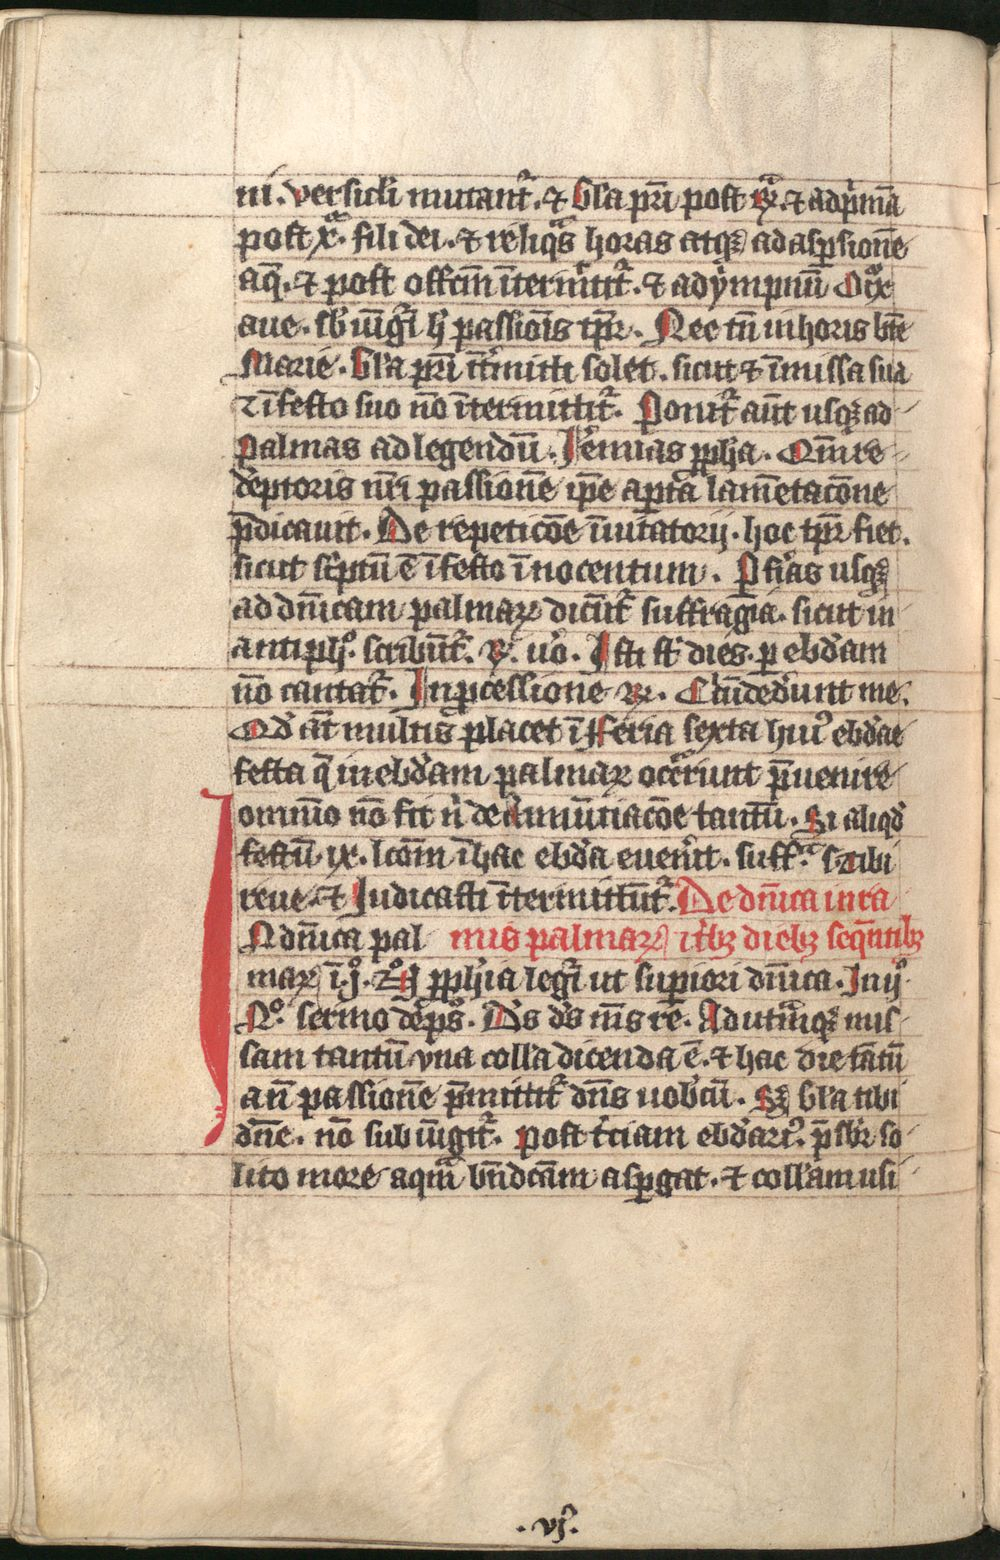 ni. versicĺi mutant᷑. ⁊ Gĺa pr̄i post R̷ᷓ. ⁊ adpͥmā
post R̷ᷓ. fili dei. ⁊ reliqͣs horas atqꝫ adasꝑsionē
aq̄. ⁊ post offcm̄ īterm̄ittit᷑. ⁊ adẏmpnū
aue. sb̓ iūgit᷑ h̓ passiōis tp̄r. Nec tn̄ in horis btē
Marie. Gĺa pr̄i īt̓mitti solet. sicut ⁊ īmissa sua
⁊ īfesto suo nō ītermittit᷑. Ponit᷑ aūt usqꝫ ad
palmas ad legendū. Jeremias ꝓph̓a. Qui re
dēptoris nr̄i passionē ip̄e aꝑta lamētacōne
p̄dicauit. De repeticōe īuitatorij. hoc tp̄r fiet.
sicut sc̓ptū ē īfesto īnocentum. P fiͤas usqꝫ
ad dn̄icam palmaꝝ dicūt᷑ suffragia. sicut in
antiph̓ꝰ. scribūt᷑. R̷. uͦo. Isti st̄ dies. ꝑ ebdͣam
nō cantat᷑. In ꝓcessione R̷. Circūdederunt me.
Qd̓ at̄ multis placet ī feria sexta huiꝰ ebdͣae
festa q̄ in ebdͣam palmaꝝ occ̓runt p̄uenire
omnīo nō fit n̓ de Annūtiacōe tantū. Si aliqd̓
festū. ix. lcōm ī hac ebdͣa euen̓it. suff.ᷓ s. Tibi
reue. ⁊ Judicasti ītermittūt᷑. De dn̄ica in ra
N dn̄ica pal mis palmaꝝ ⁊ trībꝫ diebꝫ seq̄ntibꝫ
maꝝ ī.j. ꝓph̓ia legit᷑ ut supͥori dn̄ica. In ij.
Nͦ. sermo de ps̄. Ds̄ ds̄ m̄s rē. Ad utrāqꝫ mis
sam tantū vna coll̓a dicenda ē. ⁊ hac die tātū
an̄ passionē p̄mittit᷑ dn̄s uobcū̓. Sꝫ Gĺa tibi
dn̄e. nō sub iūgit᷑. post tciam ebdͣariꝰ. p̄sbr̄ so
lito more aqͣm bn̄dcām asꝑgat. ⁊ coll̓am usi
.vj.